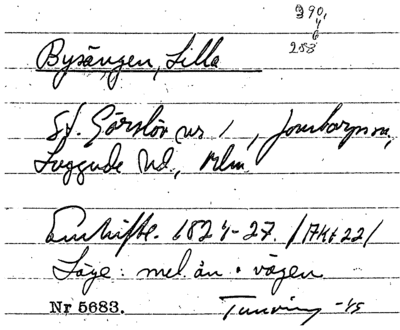 390,
4
6
288
Bysången, Lilla
Sf. Görslöv nr 1,
Luggude hd., Mlm.
Enskifte. 1824-27. /17k622/
Läge: mel. ån o. vägen
Nr 5683. Tunving -45